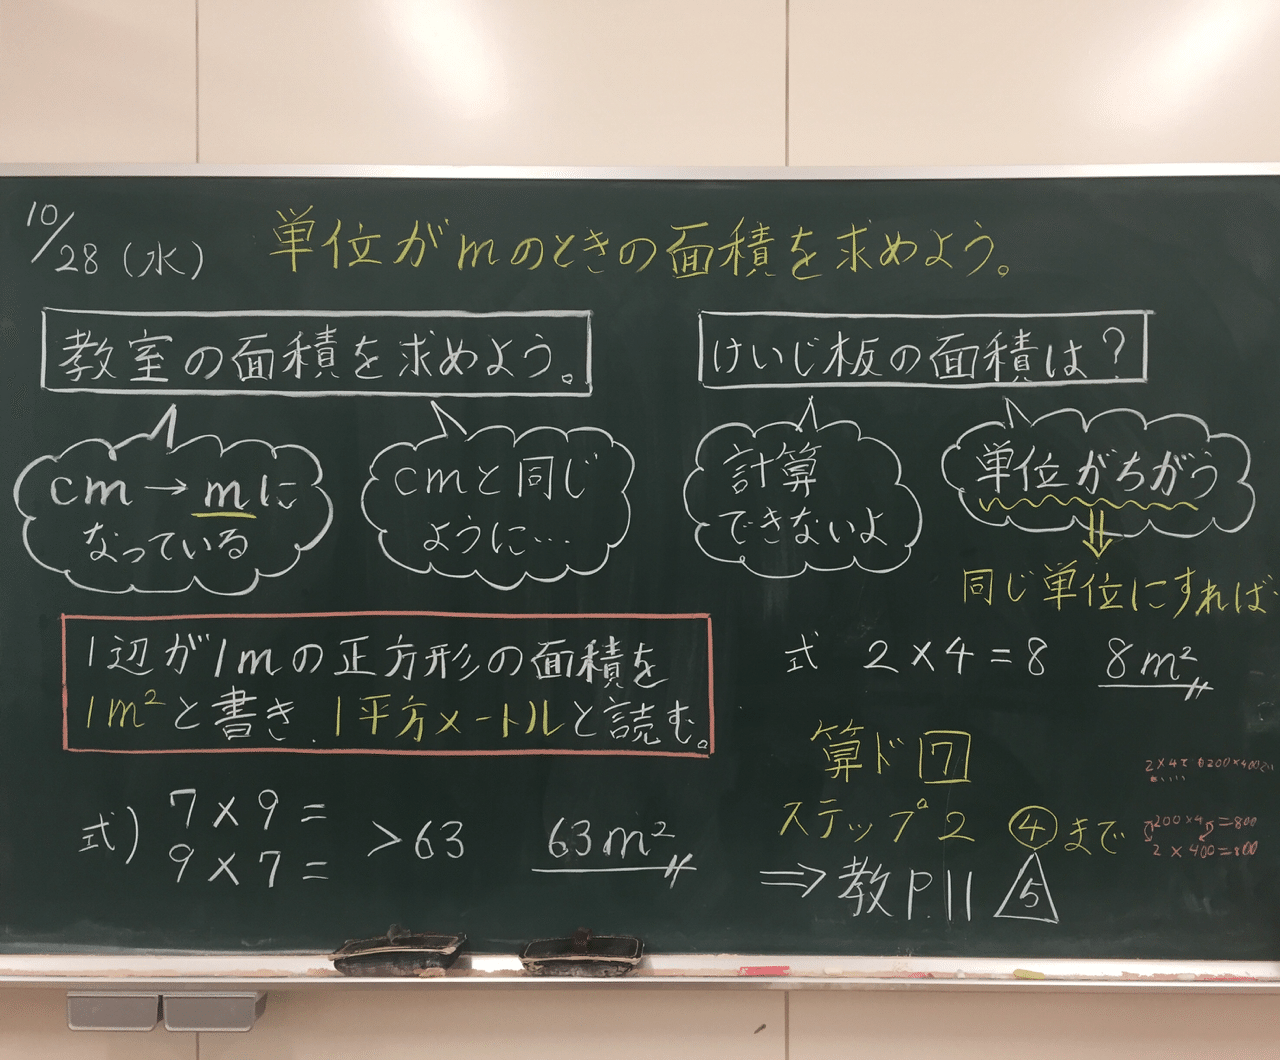 10/28(水)
単位がmのときの面積を求めよう。
教室の面積を求めよう。
cm→mに
なっている
cmと同じ
ように…
1辺が1mの正方形の面積を
1m²と書き、1平方メートルと読む。
式) 7×9=
9×7=
>63 63m²
けいじ板の面積は?
計算
できないよ
単位がちがう
⇓
同じ単位にすれば…
式 2×4=8 8m²
算ド 7
ステップ2 ④まで
⇒教P.11 5
200×4=800
2×400=800